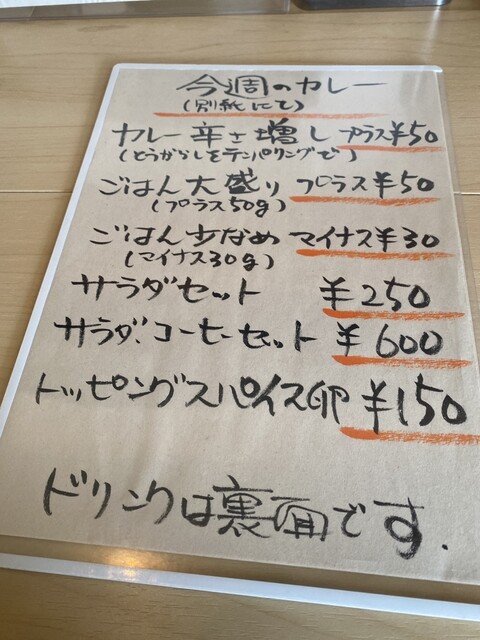 今週のカレー
(別紙にて)
カレー辛さ増し プラス¥50
(とうがらしをテンパリングで)
ごはん大盛り プラス¥50
(プラス50g)
ごはん少なめ マイナス¥30
(マイナス30g)
サラダセット ¥250
サラダ・コーヒーセット ¥600
トッピングスパイス卵 ¥150
ドリンクは裏面です.